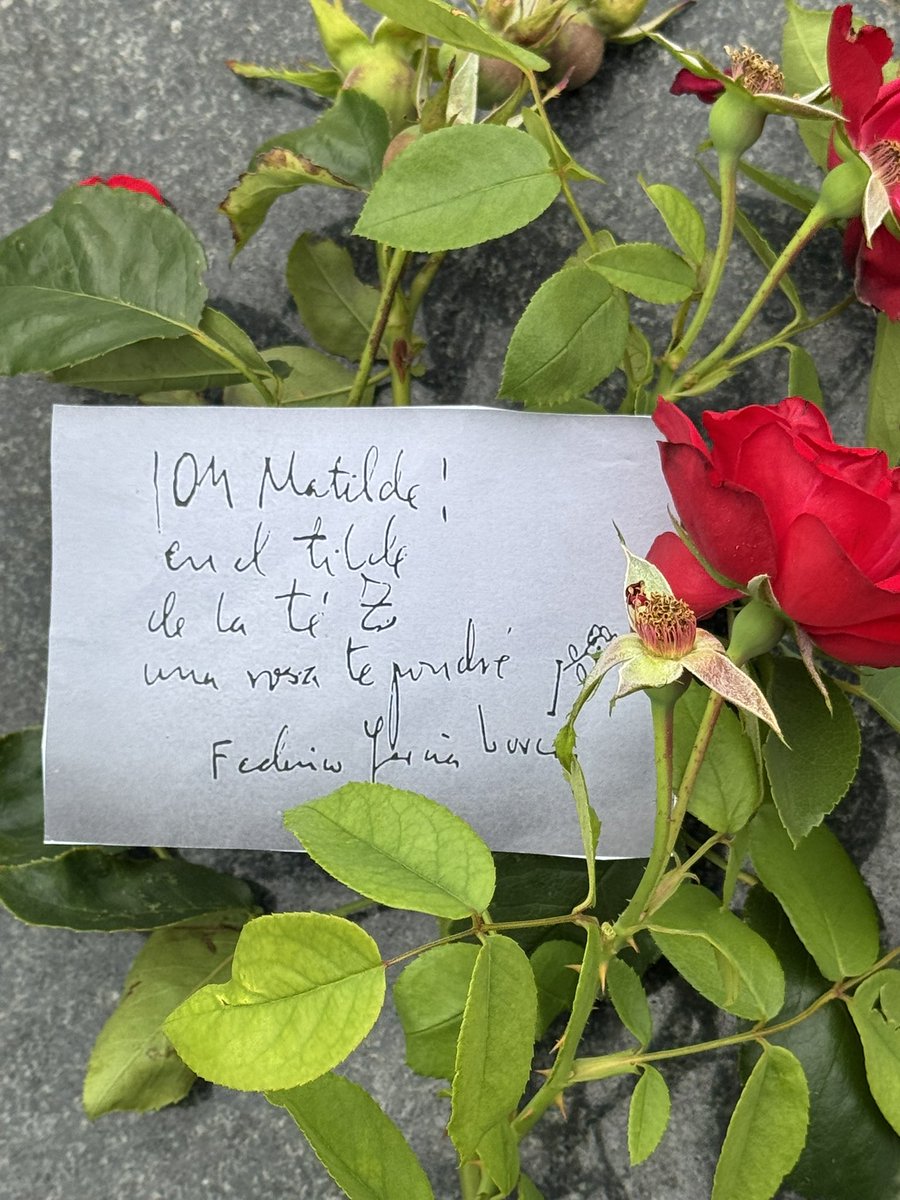 ¡Oh Matilde!
en el tilde
de la té Z
una rosa te pondré
Federico García Lorca